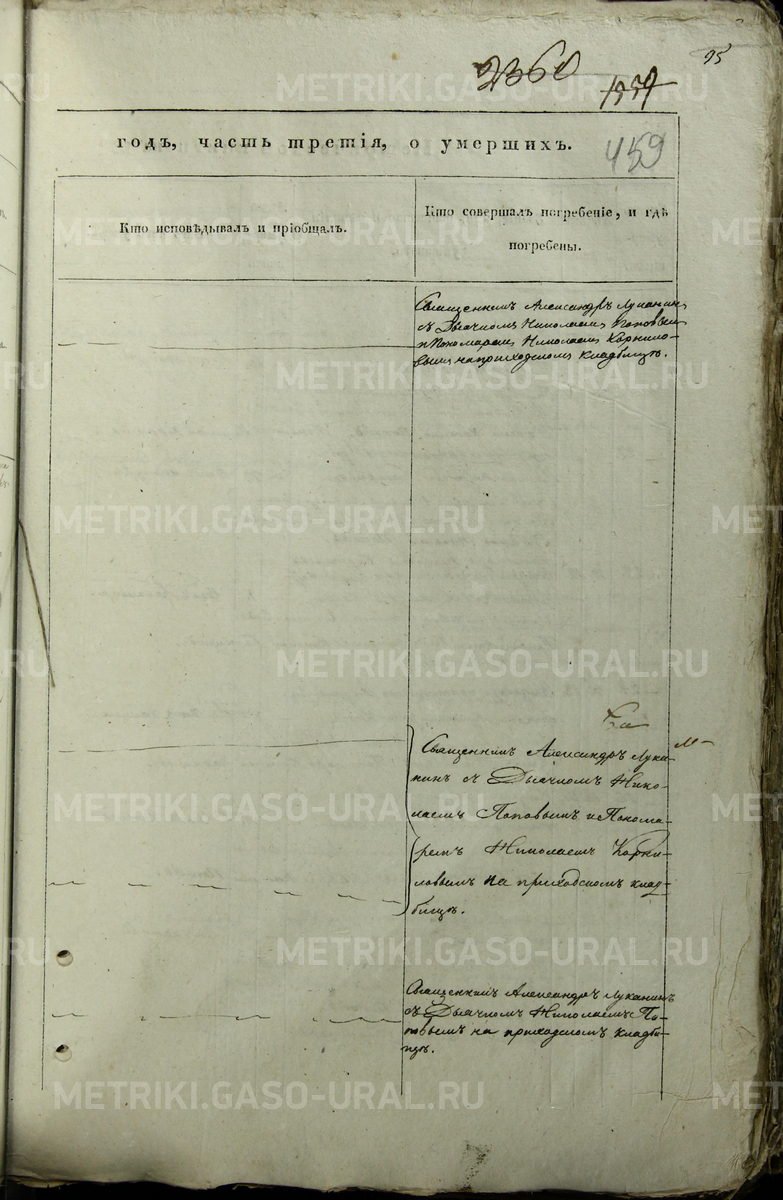 95
2360
1337
459
годъ, часть третія, о умершихъ.
Кто исповѣдывалъ и пріобщалъ.
Кто совершалъ погребеніе, и гдѣ
погребены.
Священникъ Александръ Луканинъ
съ Дьячкомъ Николаемъ Поповымъ
и Пономаремъ Николаемъ Корнило-
вымъ на приходскомъ кладбищѣ.
Священникъ Александръ Лука-
нинъ съ Дьячкомъ Нико-
лаемъ Поповымъ и Понома-
ремъ Николаемъ Корни-
ловымъ на приходскомъ клад-
бищѣ.
Священникъ Александръ Луканинъ
съ Дьячкомъ Николаемъ По-
повымъ на приходскомъ кладби-
щѣ.
METRIKI.GASO-URAL.RU